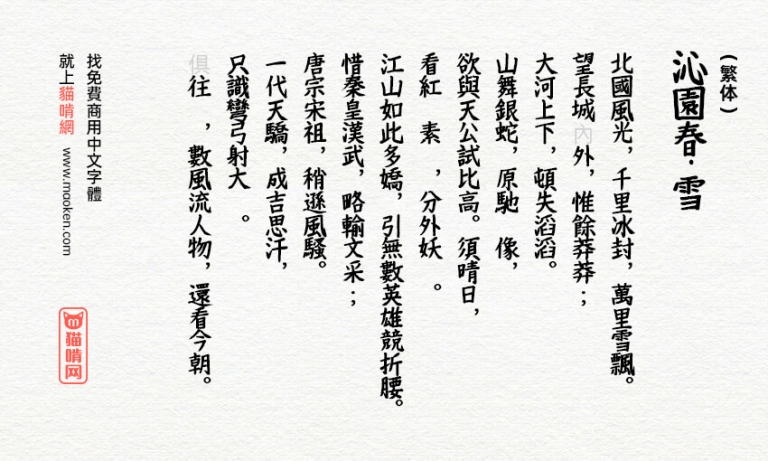 (繁体)
沁園春·雪
北國風光，千里冰封，萬里雪飄。
望長城內外，惟餘莽莽；
大河上下，頓失滔滔。
山舞銀蛇，原馳 像，
欲與天公試比高。須晴日，
看紅 素 ，分外妖 。
江山如此多嬌，引無數英雄競折腰。
惜秦皇漢武，略輸文采；
唐宗宋祖，稍遜風騷。
一代天驕，成吉思汗，
只識彎弓射大 。
俱往 ，數風流人物，還看今朝。
找免費商用中文字體
就上貓啃網 www.mooken.com
貓啃网